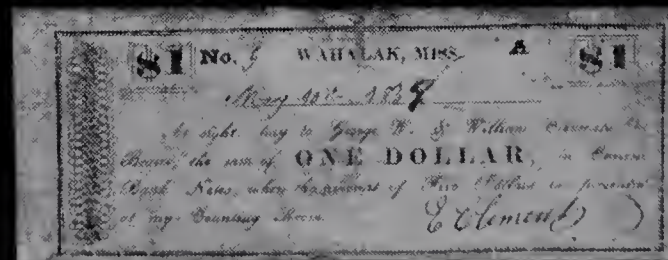 $1 No. WAHALAK, MISS. A $1
May 183
At sight, pay to George W. & William Clement or
Bearer, the sum of ONE DOLLAR, in Current
Bank Notes, when the amount of Five Dollars is presented
at my Counting Room. E Clement